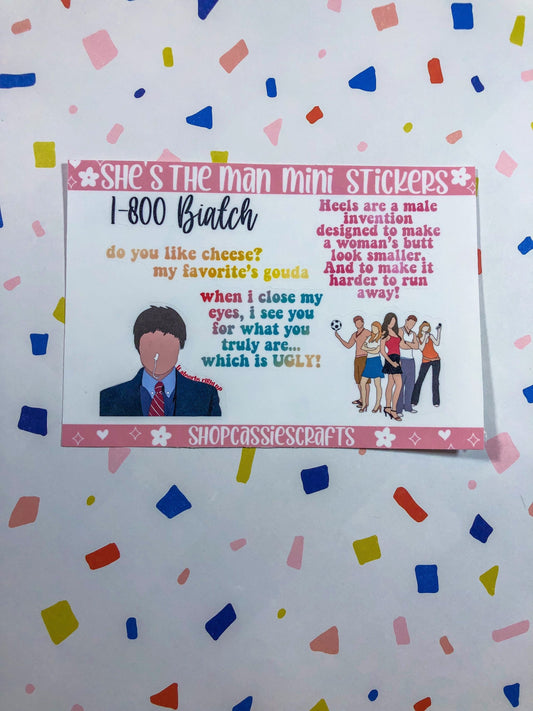 SHE'S THE MAN MINI STICKERS
1-800 Biatch
Heels are a male
invention
designed to make
a woman's butt
look smaller.
And to make it
harder to run
away!
do you like cheese?
my favorite's gouda
when i close my
eyes, i see you
for what you
truly are...
which is UGLY!
SHOPCASSIESCRAFTS